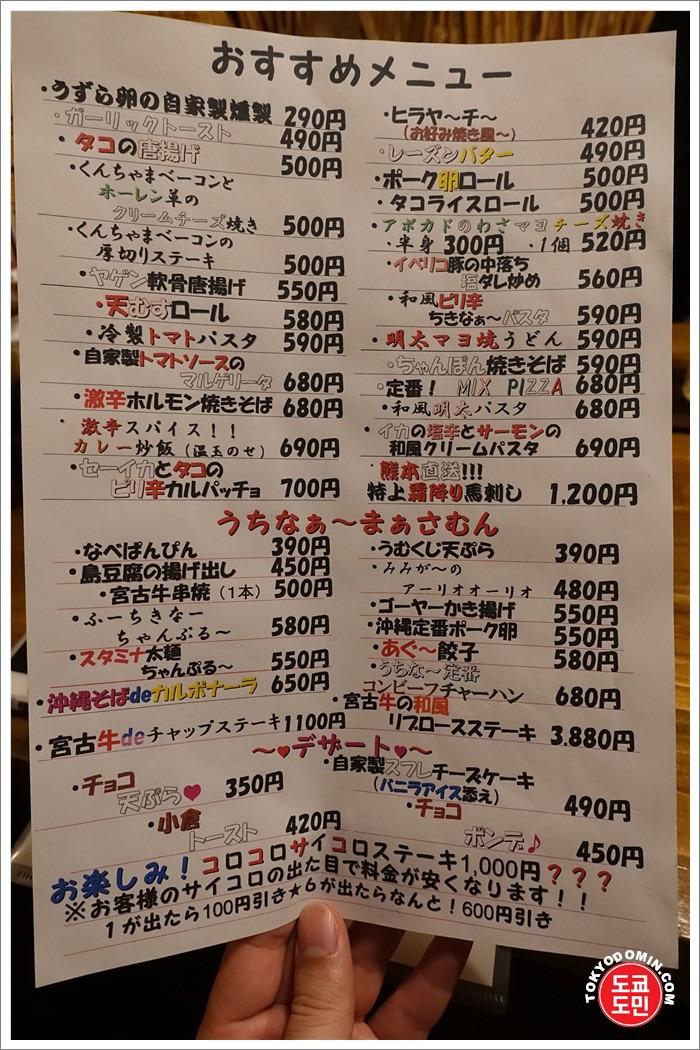 おすすめメニュー
・うずら卵の自家製燻製 290円
・ガーリックトースト 490円
・タコの唐揚げ 500円
・くんちゃまベーコンと
ホーレン草の
クリームチーズ焼き 500円
・くんちゃまベーコンの
厚切りステーキ 500円
・ヤゲン軟骨唐揚げ 550円
・天むすロール 580円
・冷製トマトパスタ 590円
・自家製トマトソースの
マルゲリータ 680円
・激辛ホルモン焼きそば 680円
・激辛スパイス！！
カレー炒飯（温玉のせ） 690円
・セーイカとタコの
ピリ辛カルパッチョ 700円
・ヒラヤ～チ～
（お好み焼き風～） 420円
・レーズンバター 490円
・ポーク卵ロール 500円
・タコライスロール 500円
・アボカドのわさマヨチーズ焼き
・半身 300円 ・1個 520円
・イベリコ豚の中落ち
塩ダレ炒め 560円
・和風ピリ辛
ちきなぁ～パスタ 590円
・明太マヨ焼うどん 590円
・ちゃんぽん焼きそば 590円
・定番！ MIX PIZZA 680円
・和風明太パスタ 680円
・イカの塩辛とサーモンの
和風クリームパスタ 690円
熊本直送!!!
特上霜降り馬刺し 1,200円
うちなぁ～まぁさむん
・なべぱんぴん 390円
・島豆腐の揚げ出し 450円
・宮古牛串焼（1本） 500円
・ふーちきなー
ちゃんぷる～ 580円
・スタミナ太麺
ちゃんぷる～ 550円
・沖縄そばdeカルボナーラ 650円
・宮古牛deチャップステーキ 1100円
・うむくじ天ぷら 390円
・みみが～の
アーリオオーリオ 480円
・ゴーヤーかき揚げ 550円
・沖縄定番ポーク卵 550円
・あぐ～餃子 580円
・うちな～定番
コンビーフチャーハン 680円
・宮古牛の和風
リブロースステーキ 3.880円
～♥デザート♥～
・チョコ
天ぷら♥ 350円
・小倉
トースト 420円
・自家製スフレチーズケーキ
（バニラアイス添え） 490円
・チョコ
ポンデ♪ 450円
お楽しみ！コロコロサイコロステーキ1,000円？？？
※お客様のサイコロの出た目で料金が安くなります！！
1が出たら100円引き★6が出たらなんと！600円引き
TOKYODOMIN.COM
도쿄
도민